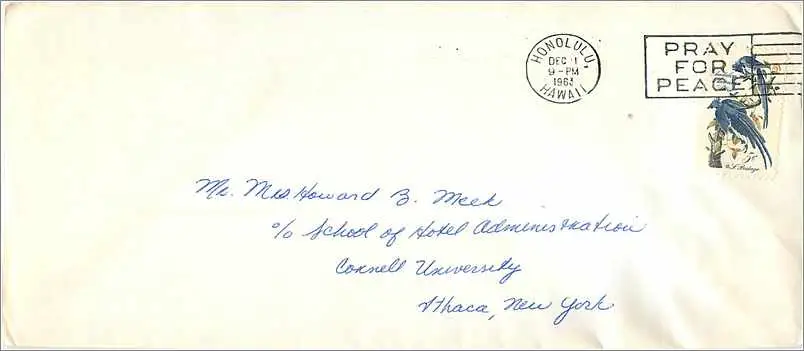 HONOLULU,
DEC 1
9-PM
1963
HAWAII
PRAY
FOR
PEACE
5¢
U.S. Postage
Mr. Mrs. Howard B. Meek
c/o School of Hotel Administration
Cornell University
Ithaca, New York